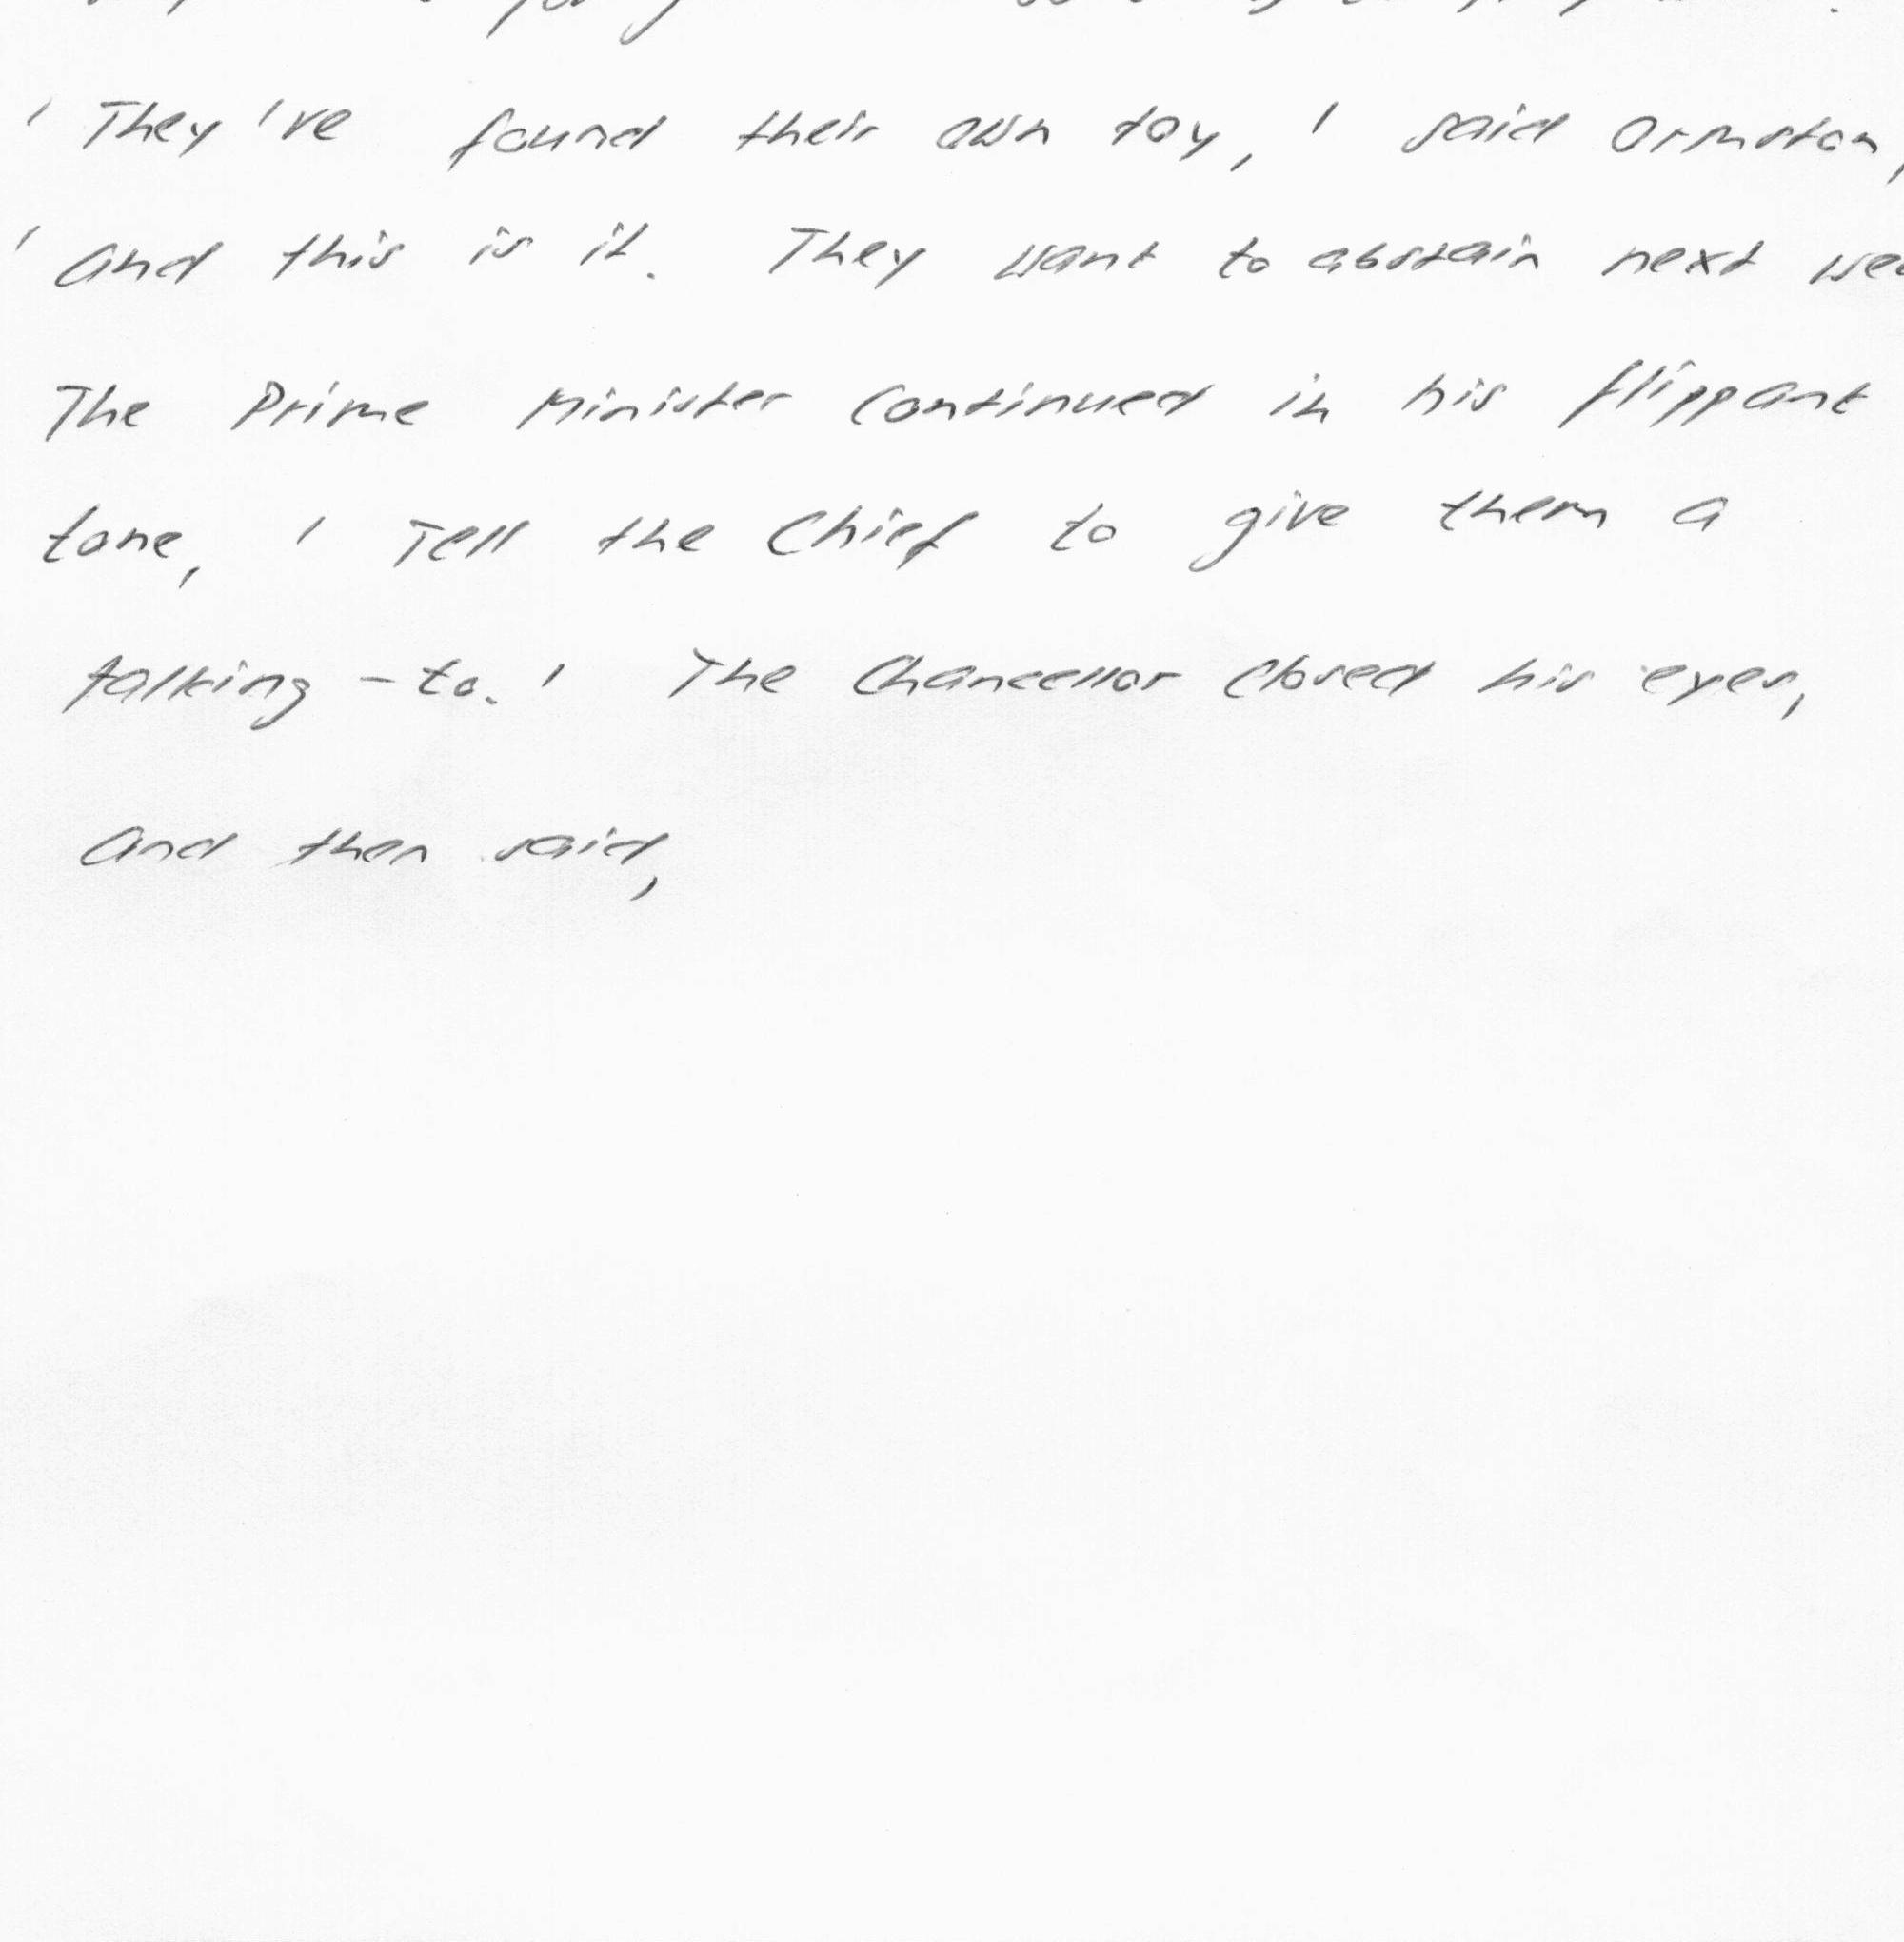 'They've found their own toy,' said Ormston,
'and this is it. They want to abstain next
The Prime Minister continued in his flippant
tone, 'Tell the Chief to give them a
talking-to.' The Chancellor closed his eyes,
and then said,